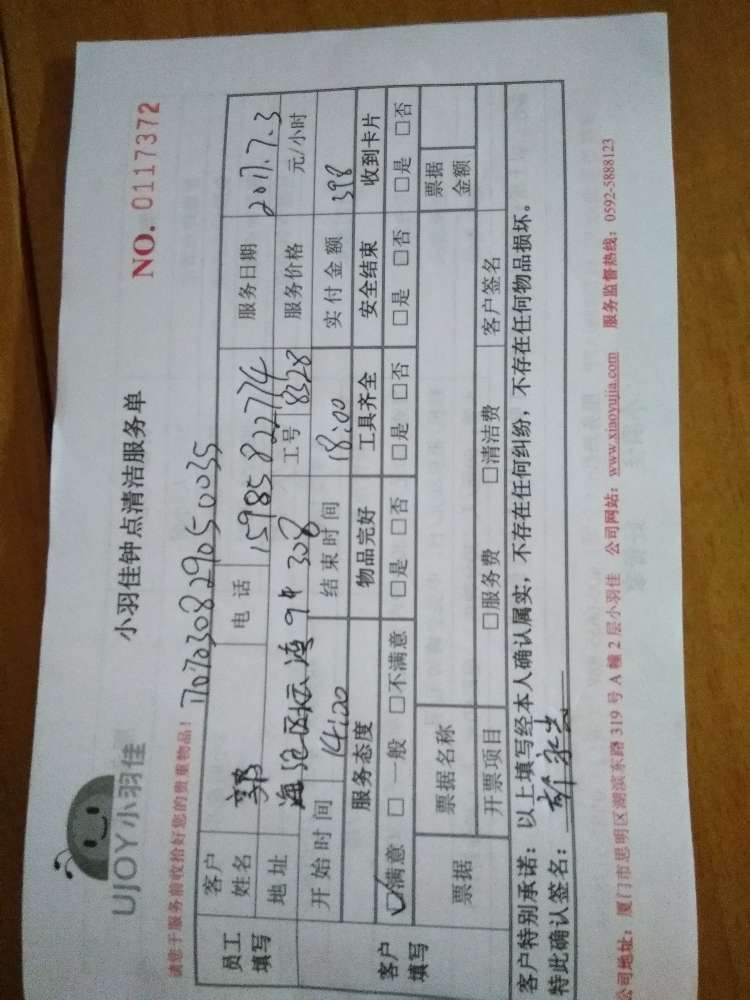 UJOY小羽佳
小羽佳钟点清洁服务单
NO. 0117372
请您于服务前收拾好您的贵重物品!
员工填写
客户姓名 郭 电话 15985822774 服务日期 2017.7.3
地址 海沧区 308 工号 8328 服务价格 元/小时
开始时间 14:00 结束时间 18:00 实付金额 398
客户填写
服务态度 物品完好 工具齐全 安全结束 收到卡片
☑满意 □一般 □不满意 □是 □否 □是 □否 □是 □否 □是 □否
票据 票据名称 票据金额
开票项目 □服务费 □清洁费 客户签名
客户特别承诺:以上填写经本人确认属实,不存在任何纠纷,不存在任何物品损坏。
特此确认签名:
公司地址:厦门市思明区湖滨东路 319 号 A 幢 2 层小羽佳 公司网站:www.xiaoyujia.com 服务监督热线:0592-5888123